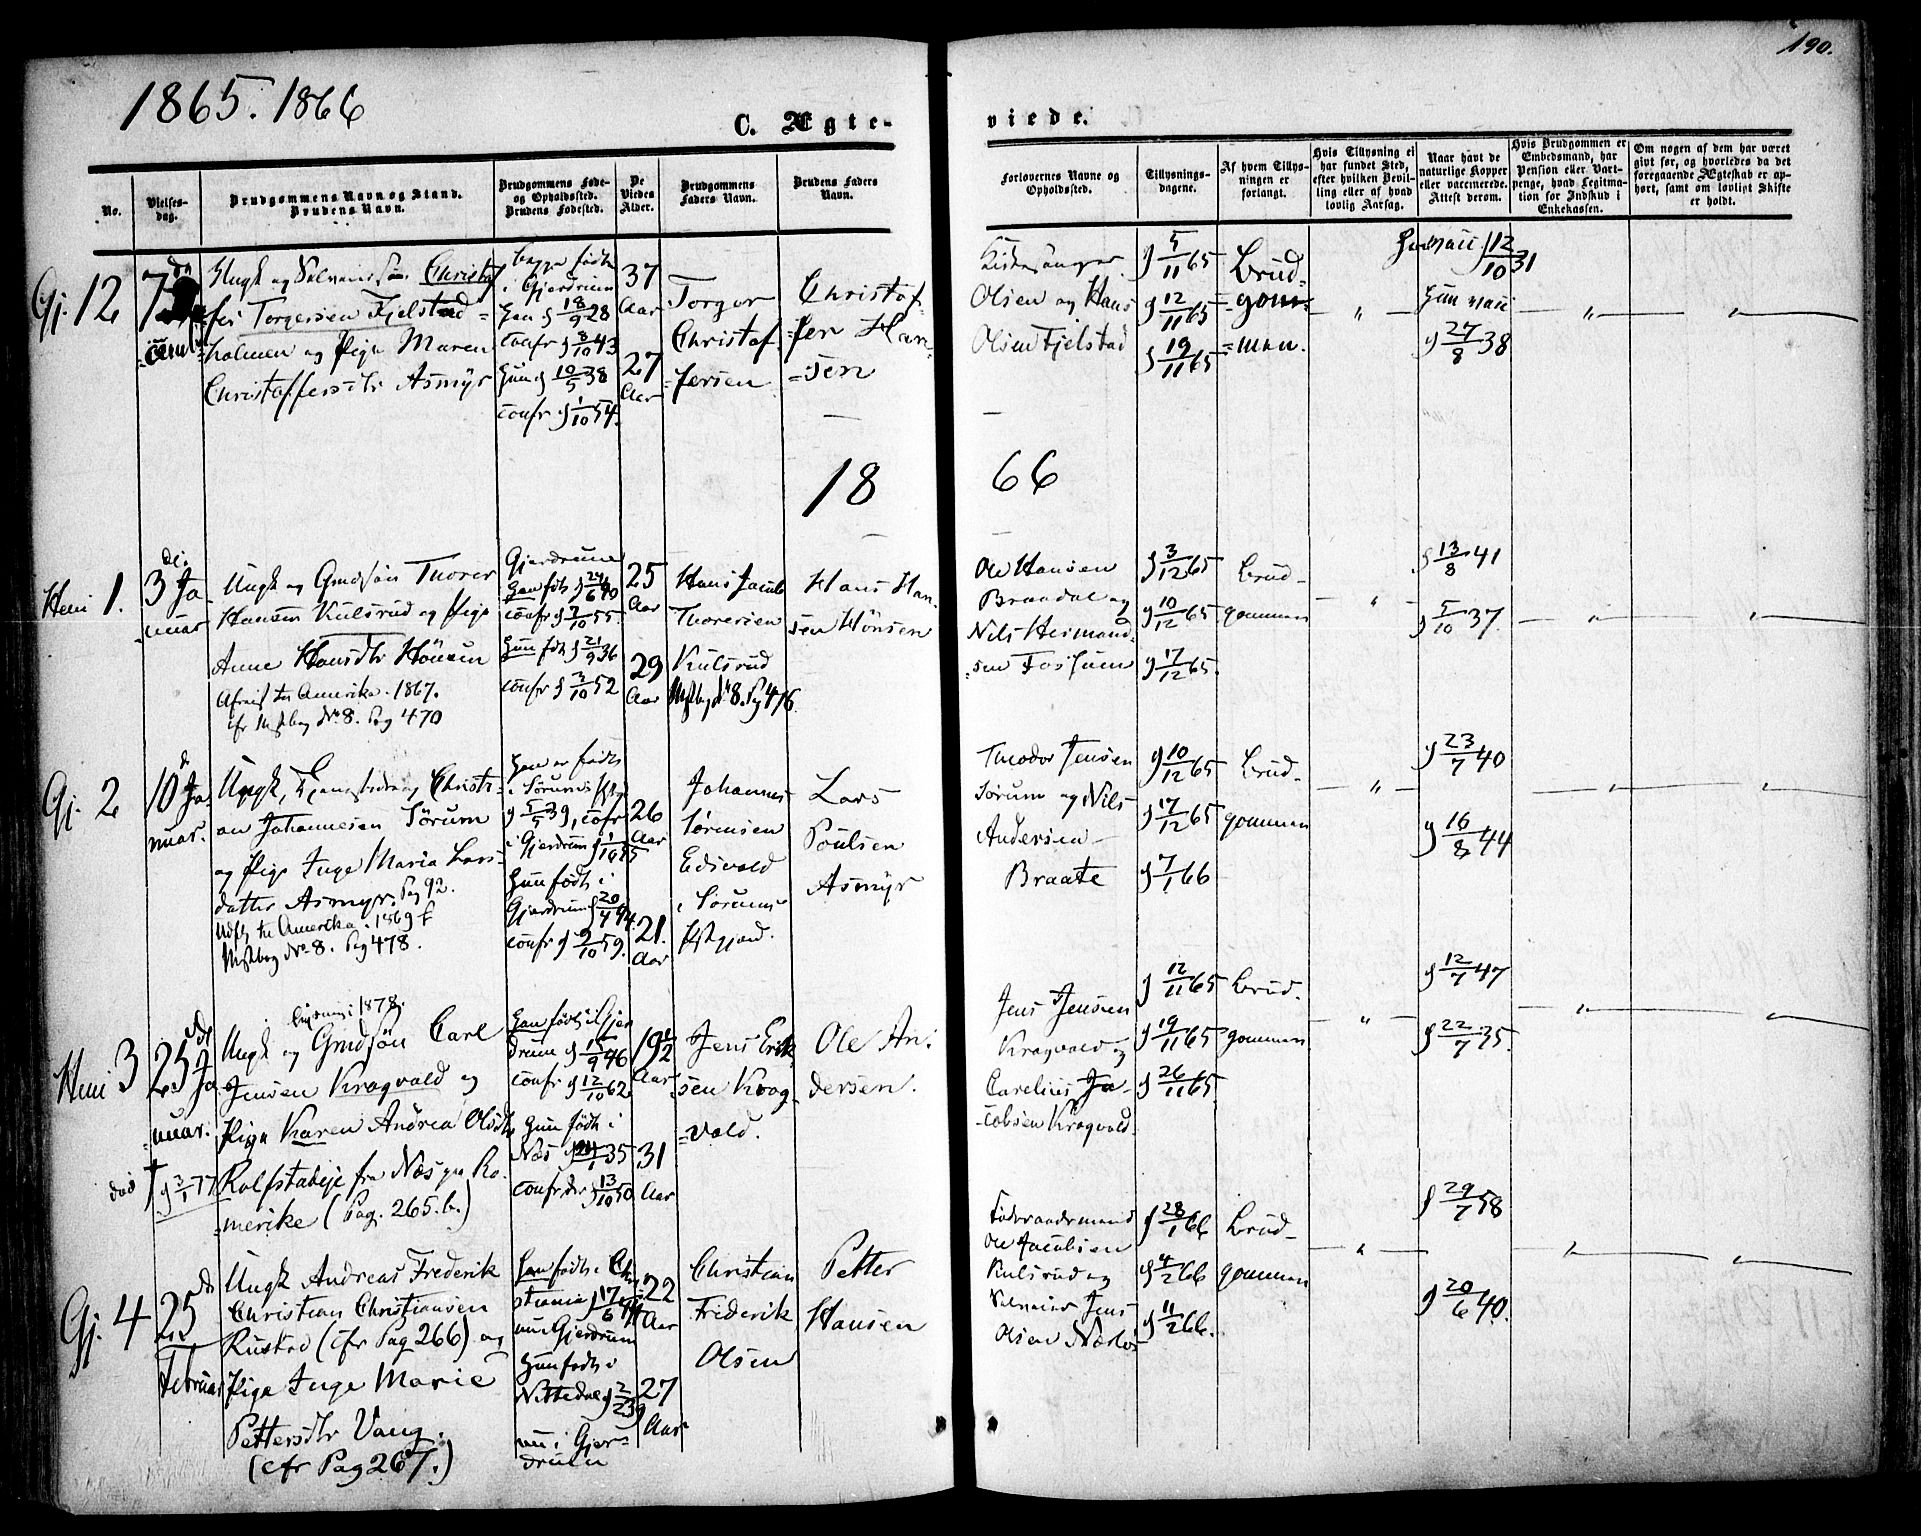 190.
1865. 1866
C. Ægte-
viede.
No.
Vielses-
dag.
Brudgommens Navn og Stand.
Brudens Navn.
Brudgommens Føde-
og Opholdssted.
Brudens Fødested.
De
Viedes
Alder.
Brudgommens
Faders Navn.
Brudens Faders
Navn.
Forlovernes Navne og
Opholdssted.
Tillysnings-
dagene.
Af hvem Tillys-
ningen er
forlangt.
Hvis Tillysning ei
har fundet Sted,
efter hvilken Bevil-
ling eller af hvad
lovlig Aarsag.
Naar havt de
naturlige Kopper
eller vaccinerede.
Attest derom.
Hvis Brudgommen er
Embedsmand, har
Pension eller Vart-
penge, hvad Legitima-
tion for Indskud i
Enkekassen.
Om nogen af dem har været
givt før, og hvorledes da det
foregaaende Ægteskab er op-
hørt, samt om lovligt Skifte
er holdt.
Gj. 12
Ungk og Selveiersøn Christof-
fer Torgersen Fjelstad-
holmen og Pige Maren
Christoffersdtr Asmyr
begge født
i Gjerdrum
Han d 18/9 28
confr d 8/10 43
Hun d 10/5 38
confr d 1/10 54.
37
Aar
27
Aar
Torger
Christof-
fersen
Christof-
fer Han-
sen
Kirkesanger
Olsen og Hans
Olsen Fjelstad
d 5/11 65
d 12/11 65
d 19/11 65
Brud-
gom-
men.
12/10 31
Hun vacc
d 27/8 38
18
66
Heni 1.
3 Ja-
nuar
Ungk og Grndsøn Thorer
Hansen Kulsrud og Pige
Anne Hansdtr Hönsen
Afreist til Amerika 1867.
cfr Mstbog No 8. Pag 470
Gjerdrum
Han født d 24/6 40
confr d 7/10 55.
Hun født d 21/9 36
confr d 3/10 52
25
Aar
29
Aar
Hans Jacob
Thorersen
Kulsrud
Mstbog No 8. Pg 476
Hans Han-
sen Hönsen
Ole Hansen
Braadal og
Nils Hermand-
sen Fossum
d 3/12 65
d 10/12 65
d 17/12 65.
Brud-
gommen
d 13/8 41
d 5/10 37.
Gj. 2
10 Ja-
nuar.
Ungk, Christi-
an Johannesen Sörum
og Pige Inge Maria Lars-
datter Asmyr. Pag 92.
Udfl til Amerika 1869 f
Mstbog No 8. Pag 478.
Han er født
i Sørums
d 5/5 39, cofr
i Gjerdrum d 1/10 55
Hun født i
Gjerdrum d 20/4 44.
confr d 9/10 59.
26
Aar
21.
Aar
Johannes
Sørensen
Edsvold
i Sørums
Lars
Poulsen
Asmyr
Theodor Jensen
Sørum og Nils
Andersen
Braate
d 10/12 65
d 17/12 65
d 7/1 66
Brud-
gommen
d 23/7 40
d 16/8 44
Heni 3
25 Ja-
nuar.
død † d 3/1 77
Ungk og Grndsön Carl
Jensen Kragvald og
Pige Karen Andrea Olsdtr
Rolfstadeje fra Næs paa Ro-
merike (Pag. 265.b.)
Han født i Gjer-
drum
confr d 12/10 62
Hun født i
Næs
confr der d 13/10 50
19 1/2
Aar
31
Aar
Jens Erik-
sen Krag-
vald.
Ole An-
dersen.
Jens Jensen
Kragvald og
Carelius Ja-
cobsen Kragvald.
d 12/11 65
d 19/11 65
d 26/11 65
Brud-
gommen
d 12/7 47
d 22/7 35.
Gj. 4
25
Februar
Ungk Andreas Frederik
Christian Christiansen
Rustad (cfr Pag 266) og
Pige Inge Marie
Pettersdtr Vang.
(cfr Pag 267.)
Han født i Chri-
stiania d 17/6 44
nu Gjerdrum
Hun født i
Nittedal d 2/2 39
nu i Gjer-
drum
22
Aar
27
Aar
Christian
Friderik
Olsen
Petter
Hansen
Föderaadsmand
Ole Jacobsen
Kulsrud og
Selveier Jens
Olsen
d 28/1 66
d 4/2 66
d 11/2 66.
Brud-
gommen
d 29/7 58
d 20/6 40.